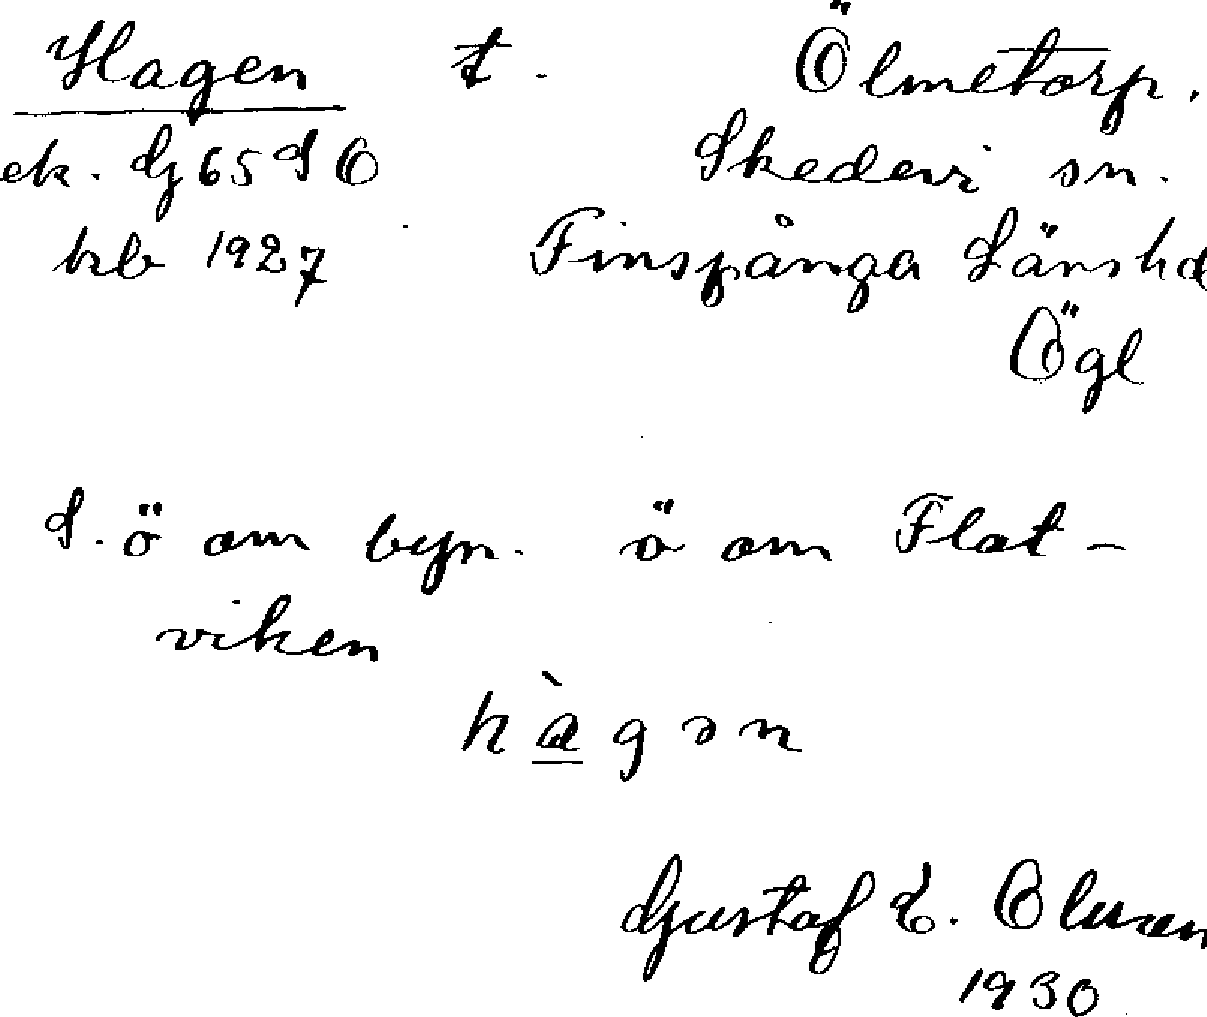 Hagen t. Ölmetorp.
ek. G 65 S O Skedevi sn.
krb 1927 Finspånga Länshd
Ögl
S. ö om byn. ö om Flat-
viken
hàgən
Gustaf E. Olsson
1930